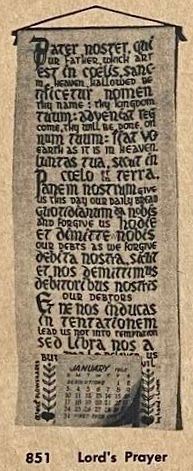 Pater noster, qui
our Father, which art
est in coelis, sanc-
in heaven, hallowed be
tificetur nomen
thy name: thy kingdom
tuum: adveniat reg
come, thy will be done, on
num tuum: fiat vo
earth as it is in heaven.
luntas tua, sicut in
coelo et terra.
Panem nostrum give
us this day our daily bread
quotidianum da nobis
and forgive us hodie
et demitte nobis
our debts as we forgive
debita nostra, sicut
et nos demittimus
debitoribus nostris
our debtors
Et ne nos inducas
in tentationem
lead us not into temptation
sed libra nos a
but us
JANUARY
S M T W T F S
851 Lord's Prayer